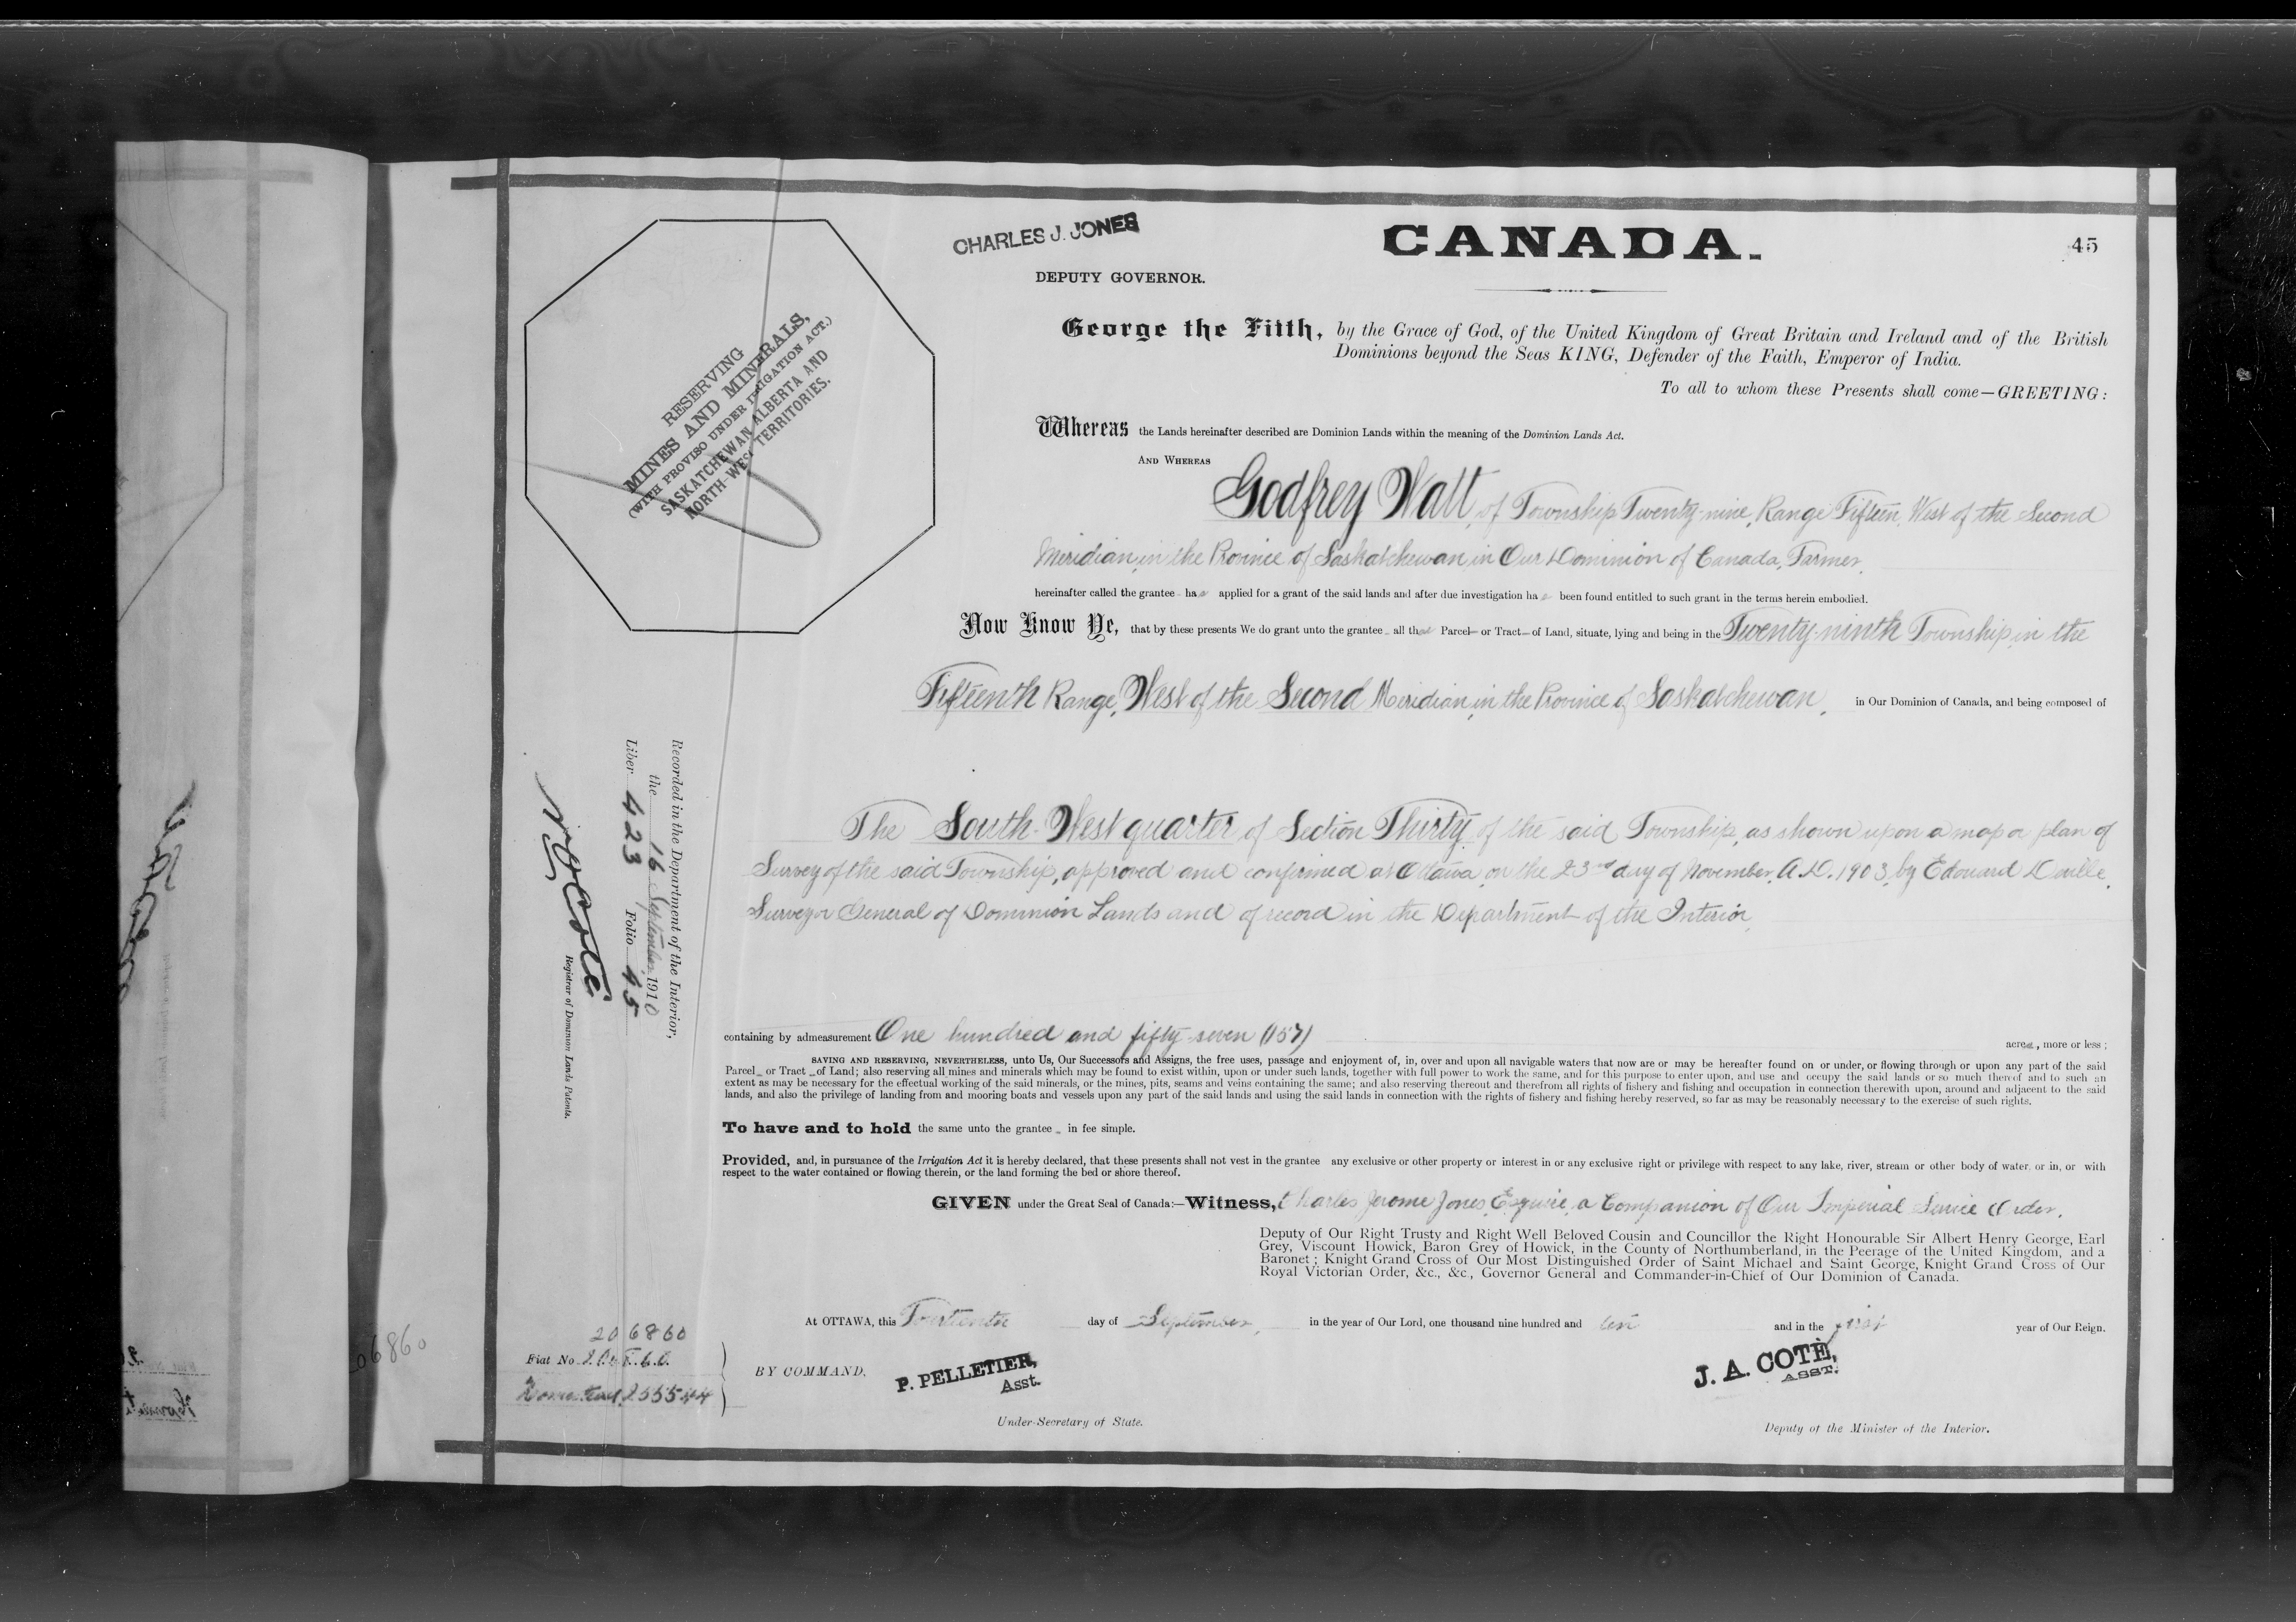 CHARLES J. JONES
DEPUTY GOVERNOR.
CANADA.
45
RESERVING
MINES AND MINERALS,
(WITH PROVISO UNDER IRRIGATION ACT.)
SASKATCHEWAN ALBERTA AND
NORTH-WEST TERRITORIES.
George the Fifth, by the Grace of God, of the United Kingdom of Great Britain and Ireland and of the British
Dominions beyond the Seas KING, Defender of the Faith, Emperor of India.
To all to whom these Presents shall come—GREETING:
Whereas the Lands hereinafter described are Dominion Lands within the meaning of the Dominion Lands Act.
AND WHEREAS
Godfrey Watt, of Township Twenty-nine, Range Fifteen, West of the Second
Meridian, in the Province of Saskatchewan, in Our Dominion of Canada, Farmer,
hereinafter called the grantee has applied for a grant of the said lands and after due investigation has been found entitled to such grant in the terms herein embodied.
Now Know Ye, that by these presents We do grant unto the grantee all that Parcel or Tract of Land, situate, lying and being in the Twenty-ninth Township, in the
Fifteenth Range, West of the Second Meridian, in the Province of Saskatchewan, in Our Dominion of Canada, and being composed of
The South-West quarter of Section Thirty of the said Township, as shown upon a map or plan of
Survey of the said Township, approved and confirmed at Ottawa, on the 23rd day of November, A.D. 1903, by Edouard Deville,
Surveyor General of Dominion Lands and of record in the Department of the Interior,
Recorded in the Department of the Interior,
the 16 September 1910
Liber 423 Folio 45
N. O. Coté
Registrar of Dominion Lands Patents.
containing by admeasurement One hundred and fifty-seven (157) acres, more or less;
SAVING AND RESERVING, NEVERTHELESS, unto Us, Our Successors and Assigns, the free uses, passage and enjoyment of, in, over and upon all navigable waters that now are or may be hereafter found on or under, or flowing through or upon any part of the said
Parcel or Tract of Land; also reserving all mines and minerals which may be found to exist within, upon or under such lands, together with full power to work the same, and for this purpose to enter upon, and use and occupy the said lands or so much thereof and to such an
extent as may be necessary for the effectual working of the said minerals, or the mines, pits, seams and veins containing the same; and also reserving thereout and therefrom all rights of fishery and fishing and occupation in connection therewith upon, around and adjacent to the said
lands, and also the privilege of landing from and mooring boats and vessels upon any part of the said lands and using the said lands in connection with the rights of fishery and fishing hereby reserved, so far as may be reasonably necessary to the exercise of such rights.
To have and to hold the same unto the grantee in fee simple.
Provided, and, in pursuance of the Irrigation Act it is hereby declared, that these presents shall not vest in the grantee any exclusive or other property or interest in or any exclusive right or privilege with respect to any lake, river, stream or other body of water, or in, or with
respect to the water contained or flowing therein, or the land forming the bed or shore thereof.
GIVEN under the Great Seal of Canada:—Witness, Charles Jerome Jones, Esquire, a Companion of Our Imperial Service Order,
Deputy of Our Right Trusty and Right Well Beloved Cousin and Councillor the Right Honourable Sir Albert Henry George, Earl
Grey, Viscount Howick, Baron Grey of Howick, in the County of Northumberland, in the Peerage of the United Kingdom, and a
Baronet; Knight Grand Cross of Our Most Distinguished Order of Saint Michael and Saint George, Knight Grand Cross of Our
Royal Victorian Order, &c., &c., Governor General and Commander-in-Chief of Our Dominion of Canada.
At OTTAWA, this Fourteenth day of September, in the year of Our Lord, one thousand nine hundred and ten and in the first year of Our Reign.
206860
Fiat No
Homestead 255544
BY COMMAND,
P. PELLETIER,
Asst.
Under-Secretary of State.
J. A. COTÉ,
ASST.
Deputy of the Minister of the Interior.
206860